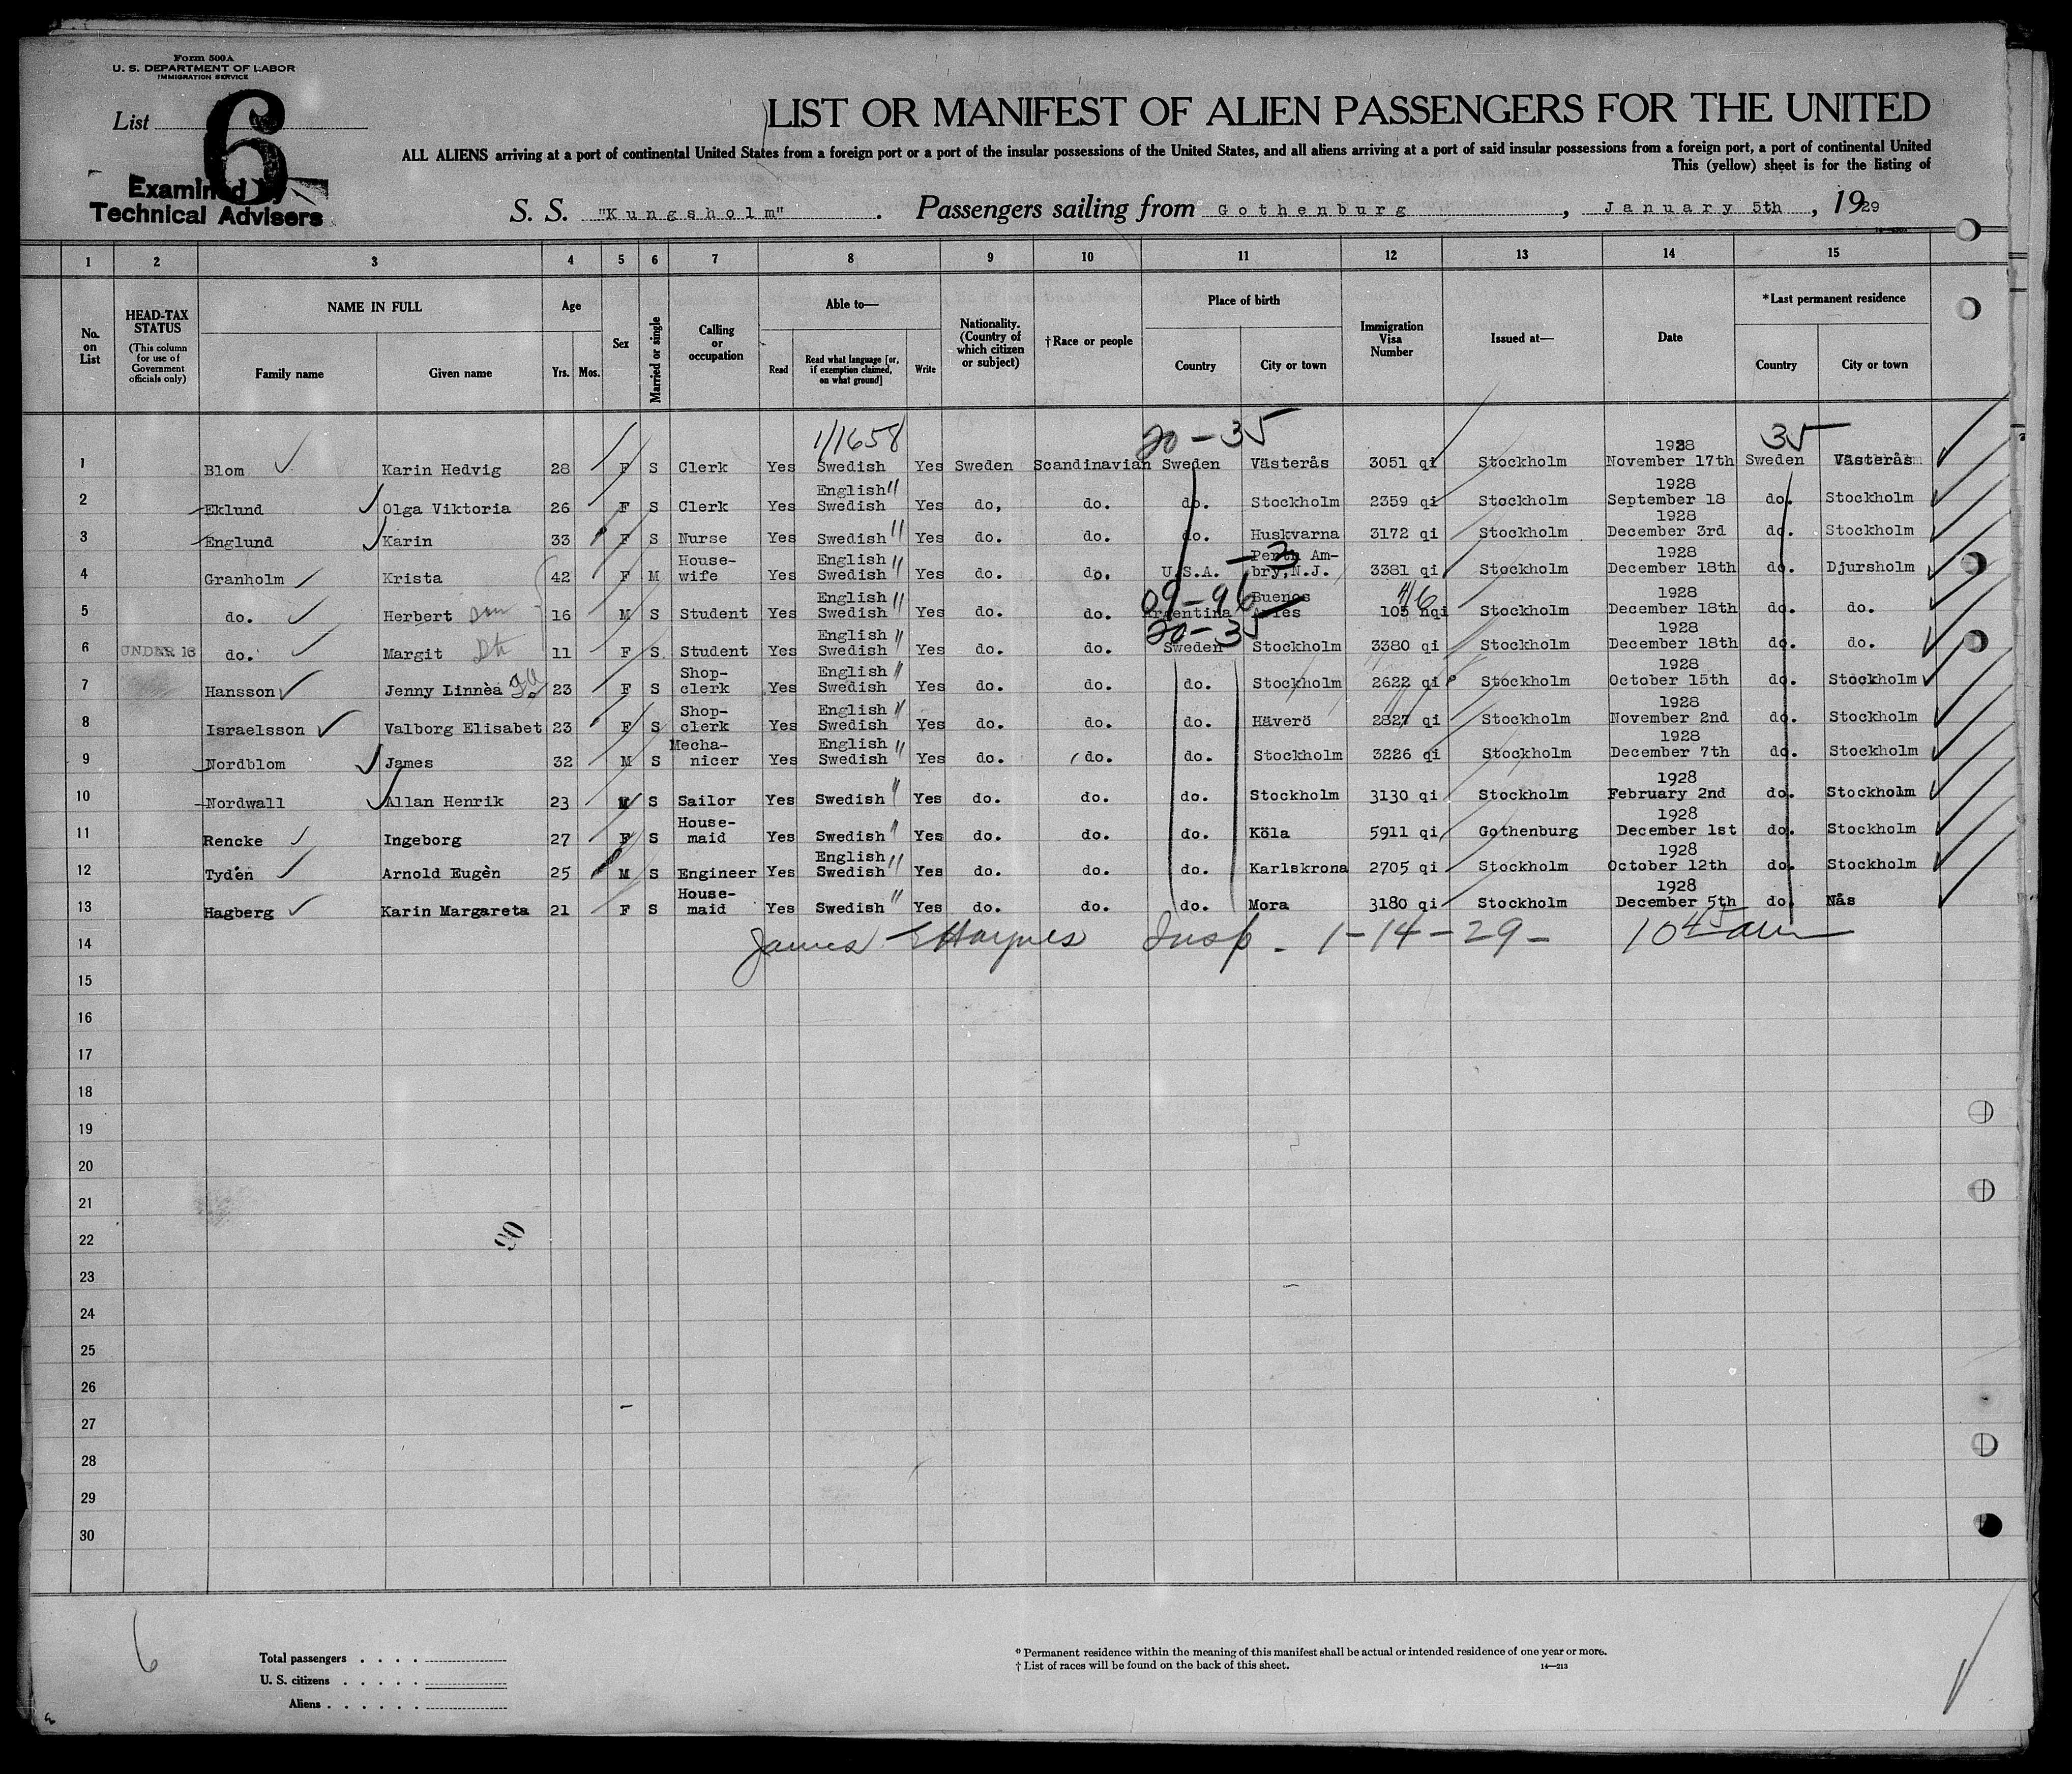 Form 500A
U. S. DEPARTMENT OF LABOR
IMMIGRATION SERVICE
List 6
Examined by
Technical Advisers
LIST OR MANIFEST OF ALIEN PASSENGERS FOR THE UNITED
ALL ALIENS arriving at a port of continental United States from a foreign port or a port of the insular possessions of the United States, and all aliens arriving at a port of said insular possessions from a foreign port, a port of continental United
This (yellow) sheet is for the listing of
S. S. "Kungsholm" . Passengers sailing from Gothenburg , January 5th , 1929
1 2 3 4 5 6 7 8 9 10 11 12 13 14 15
No. on List
HEAD-TAX STATUS
(This column for use of Government officials only)
NAME IN FULL
Family name Given name
Age
Yrs. Mos.
Sex
Married or single
Calling or occupation
Able to—
Read Read what language [or, if exemption claimed, on what ground] Write
Nationality. (Country of which citizen or subject)
†Race or people
Place of birth
Country City or town
Immigration Visa Number
Issued at—
Date
*Last permanent residence
Country City or town
1/1658 20-35 35
1 Blom Karin Hedvig 28 F S Clerk Yes Swedish Yes Sweden Scandinavian Sweden Västerås 3051 qi Stockholm 1928 November 17th Sweden Västerås
2 Eklund Olga Viktoria 26 F S Clerk Yes English Swedish " Yes do, do. do. Stockholm 2359 qi Stockholm 1928 September 18 do. Stockholm
3 Englund Karin 33 F S Nurse Yes Swedish " Yes do. do. do. Huskvarna 3172 qi Stockholm 1928 December 3rd do. Stockholm
4 Granholm Krista 42 F M House-wife Yes English Swedish " Yes do. do. U.S.A. Perth Am-bry,N.J. 3381 qi Stockholm 1928 December 18th do. Djursholm
09-96
5 do. Herbert son 16 M S Student Yes English Swedish " Yes do. do. Argentina Buenos Aries 105 nqi Stockholm 1928 December 18th do. do.
20-35
6 UNDER 16 do. Margit 11 F S Student Yes English Swedish " Yes do. do. Sweden Stockholm 3380 qi Stockholm 1928 December 18th do. do.
7 Hansson Jenny Linnèa 23 F S Shop-clerk Yes English Swedish " Yes do. do. do. Stockholm 2622 qi Stockholm 1928 October 15th do. Stockholm
8 Israelsson Valborg Elisabet 23 F S Shop-clerk Yes English Swedish " Yes do. do. do. Häverö 2827 qi Stockholm 1928 November 2nd do. Stockholm
9 Nordblom James 32 M S Mecha-nicer Yes English Swedish " Yes do. do. do. Stockholm 3226 qi Stockholm 1928 December 7th do. Stockholm
10 Nordwall Allan Henrik 23 M S Sailor Yes Swedish " Yes do. do. do. Stockholm 3130 qi Stockholm 1928 February 2nd do. Stockholm
11 Rencke Ingeborg 27 F S House-maid Yes Swedish " Yes do. do. do. Köla 5911 qi Gothenburg 1928 December 1st do. Stockholm
12 Tydén Arnold Eugèn 25 M S Engineer Yes English Swedish " Yes do. do. do. Karlskrona 2705 qi Stockholm 1928 October 12th do. Stockholm
13 Hagberg Karin Margareta 21 F S House-maid Yes Swedish " Yes do. do. do. Mora 3180 qi Stockholm 1928 December 5th do. Nås
14 James E Haynes Insp. 1-14-29- 10 45 am
15
16
17
18
19
20
21
22
23
24
25
26
27
28
29
30
6
Total passengers . . . .
U. S. citizens . . . . .
Aliens . . . . . .
* Permanent residence within the meaning of this manifest shall be actual or intended residence of one year or more.
† List of races will be found on the back of this sheet. 14—213